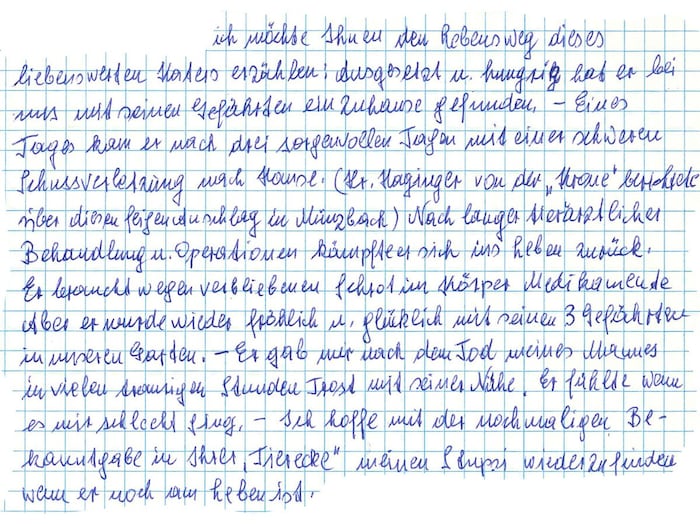 ich möchte Ihnen den Lebensweg dieses
liebenswerten Katers erzählen: Ausgesetzt u. hungrig hat er bei
uns mit seinen Gefährten ein Zuhause gefunden. – Eines
Tages kam er nach drei sorgenvollen Tagen mit einer schweren
Schussverletzung nach Hause. (Hr. Haginger von der „Krone" berichtete
über diesen feigen Anschlag in Münzbach) Nach langer tierärztlicher
Behandlung u. Operationen kämpfte er sich ins Leben zurück.
Er braucht wegen verbliebenen Schrot im Körper Medikamende
Aber er wurde wieder fröhlich u. glüklich mit seinen 3 Gefährten
in unseren Garten. – Er gab mir nach dem Tod meines Mannes
in vielen traurigen Stunden Trost mit seiner Nähe. Er fühlte wenn
es mir schlecht ging. – Ich hoffe mit der nochmaligen Be-
kanntgabe in Ihrer „Tierecke" meinen Stupsi wiederzufinden
wenn er noch am Leben ist.